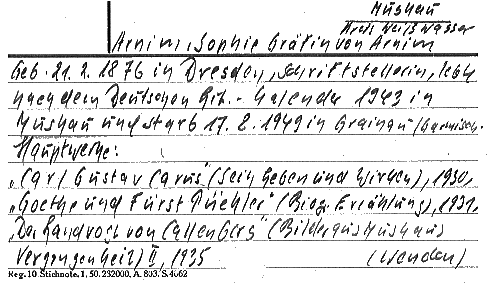 Muskau
Kreis Weißwasser
Arnim, Sophie Gräfin von Arnim
Geb. 21. 2. 1876 in Dresden, Schriftstellerin, lebte
nach dem Deutschen Lit. - Kalender 1943 in
Muskau und starb 17. 2. 1949 in Grainau/Garmisch.
Hauptwerke:
"Carl Gustav Carus" (Sein Leben und Wirken), 1930,
"Goethe und Fürst Pückler" (Biogr. Erzählung), 1932,
"Der Landvogt von Callenberg" (Bilder aus Muskaus
Vergangenheit) II, 1935 (Wenden)
Reg. 10 Stichnote. 1, 50. 232000. A. 803. S. 4062